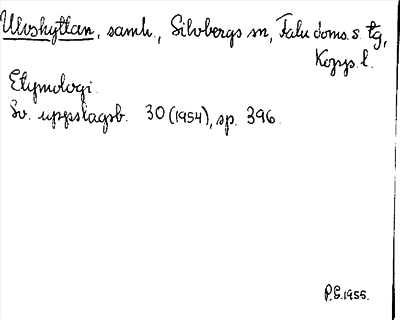 Ulvshyttan, samh., Silvbergs sn, Falu doms. s. tg,
Kopps. l.
Etymologi.
Sv. uppslagsb. 30 (1954), sp. 396.
P.E. 1955.